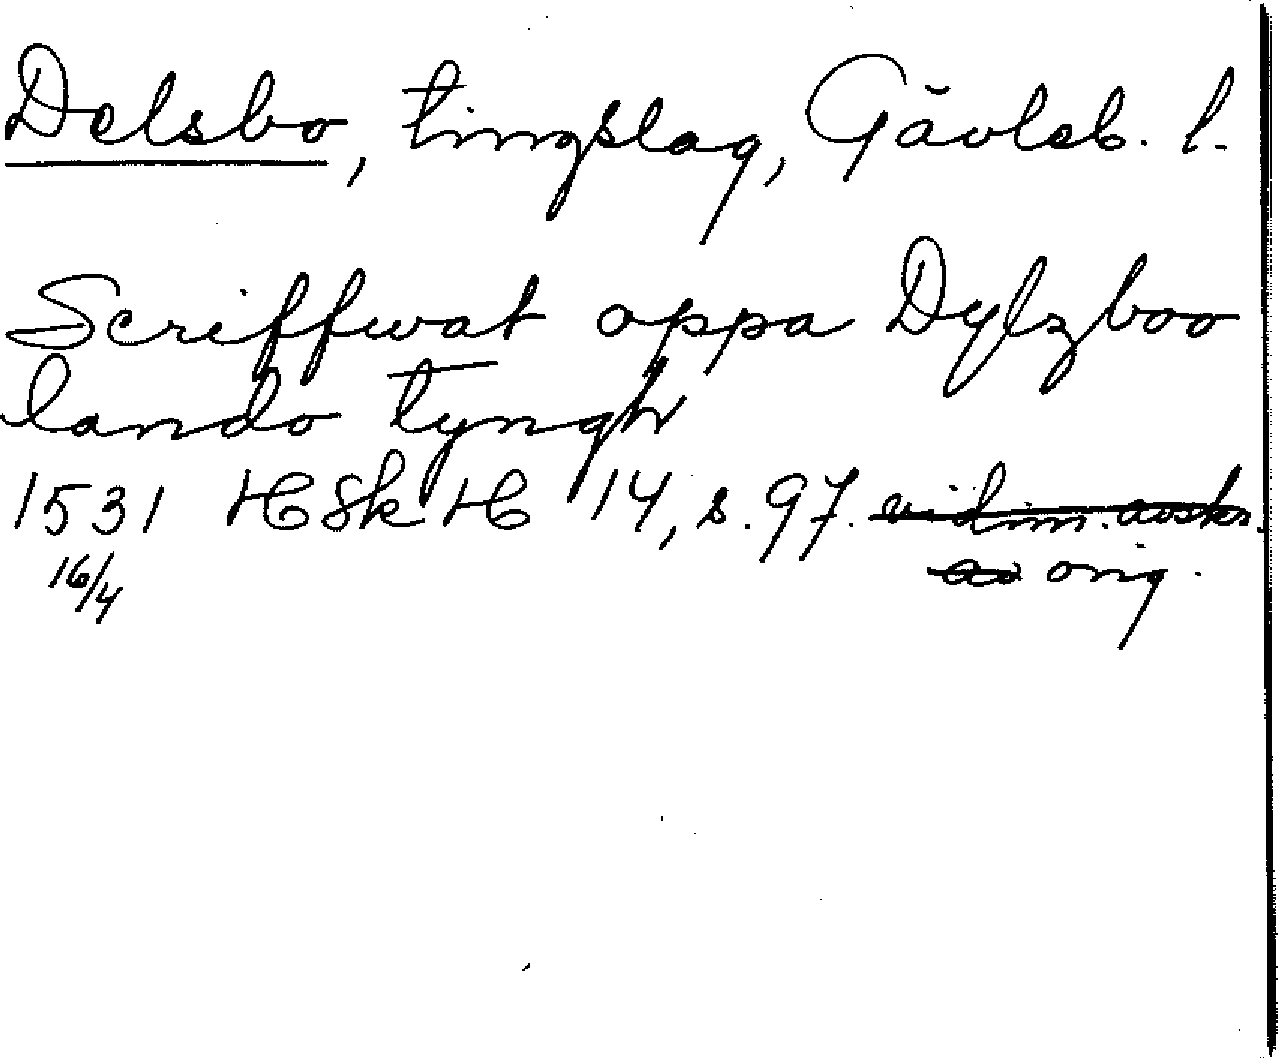 Delsbo, tingslag, Gävleb. l.
Scriffwat oppa Dylzboo
lando tyngh
1531 HSkH 14, s. 97. vidim. avskr.
16/4 av orig.